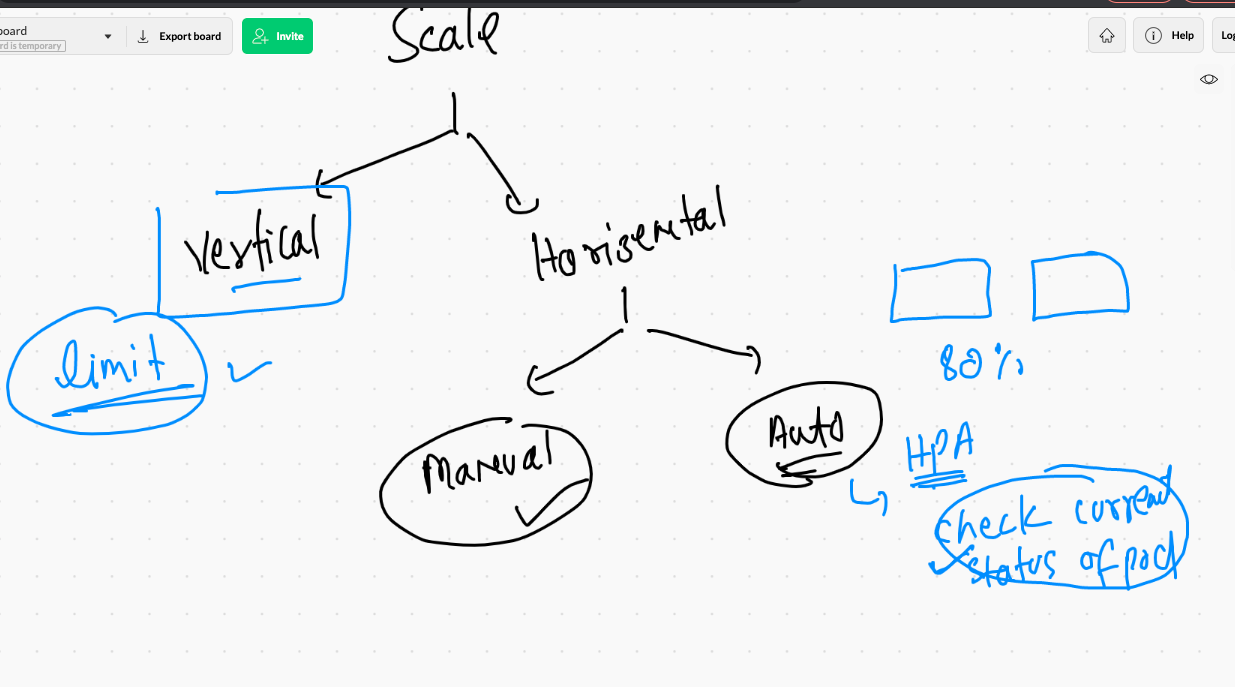 board
rd is temporary
Export board
Invite
Help
Log
Scale
Vertical
Horisental
limit
80%
Manual
Auto
HPA
check current
status of pod